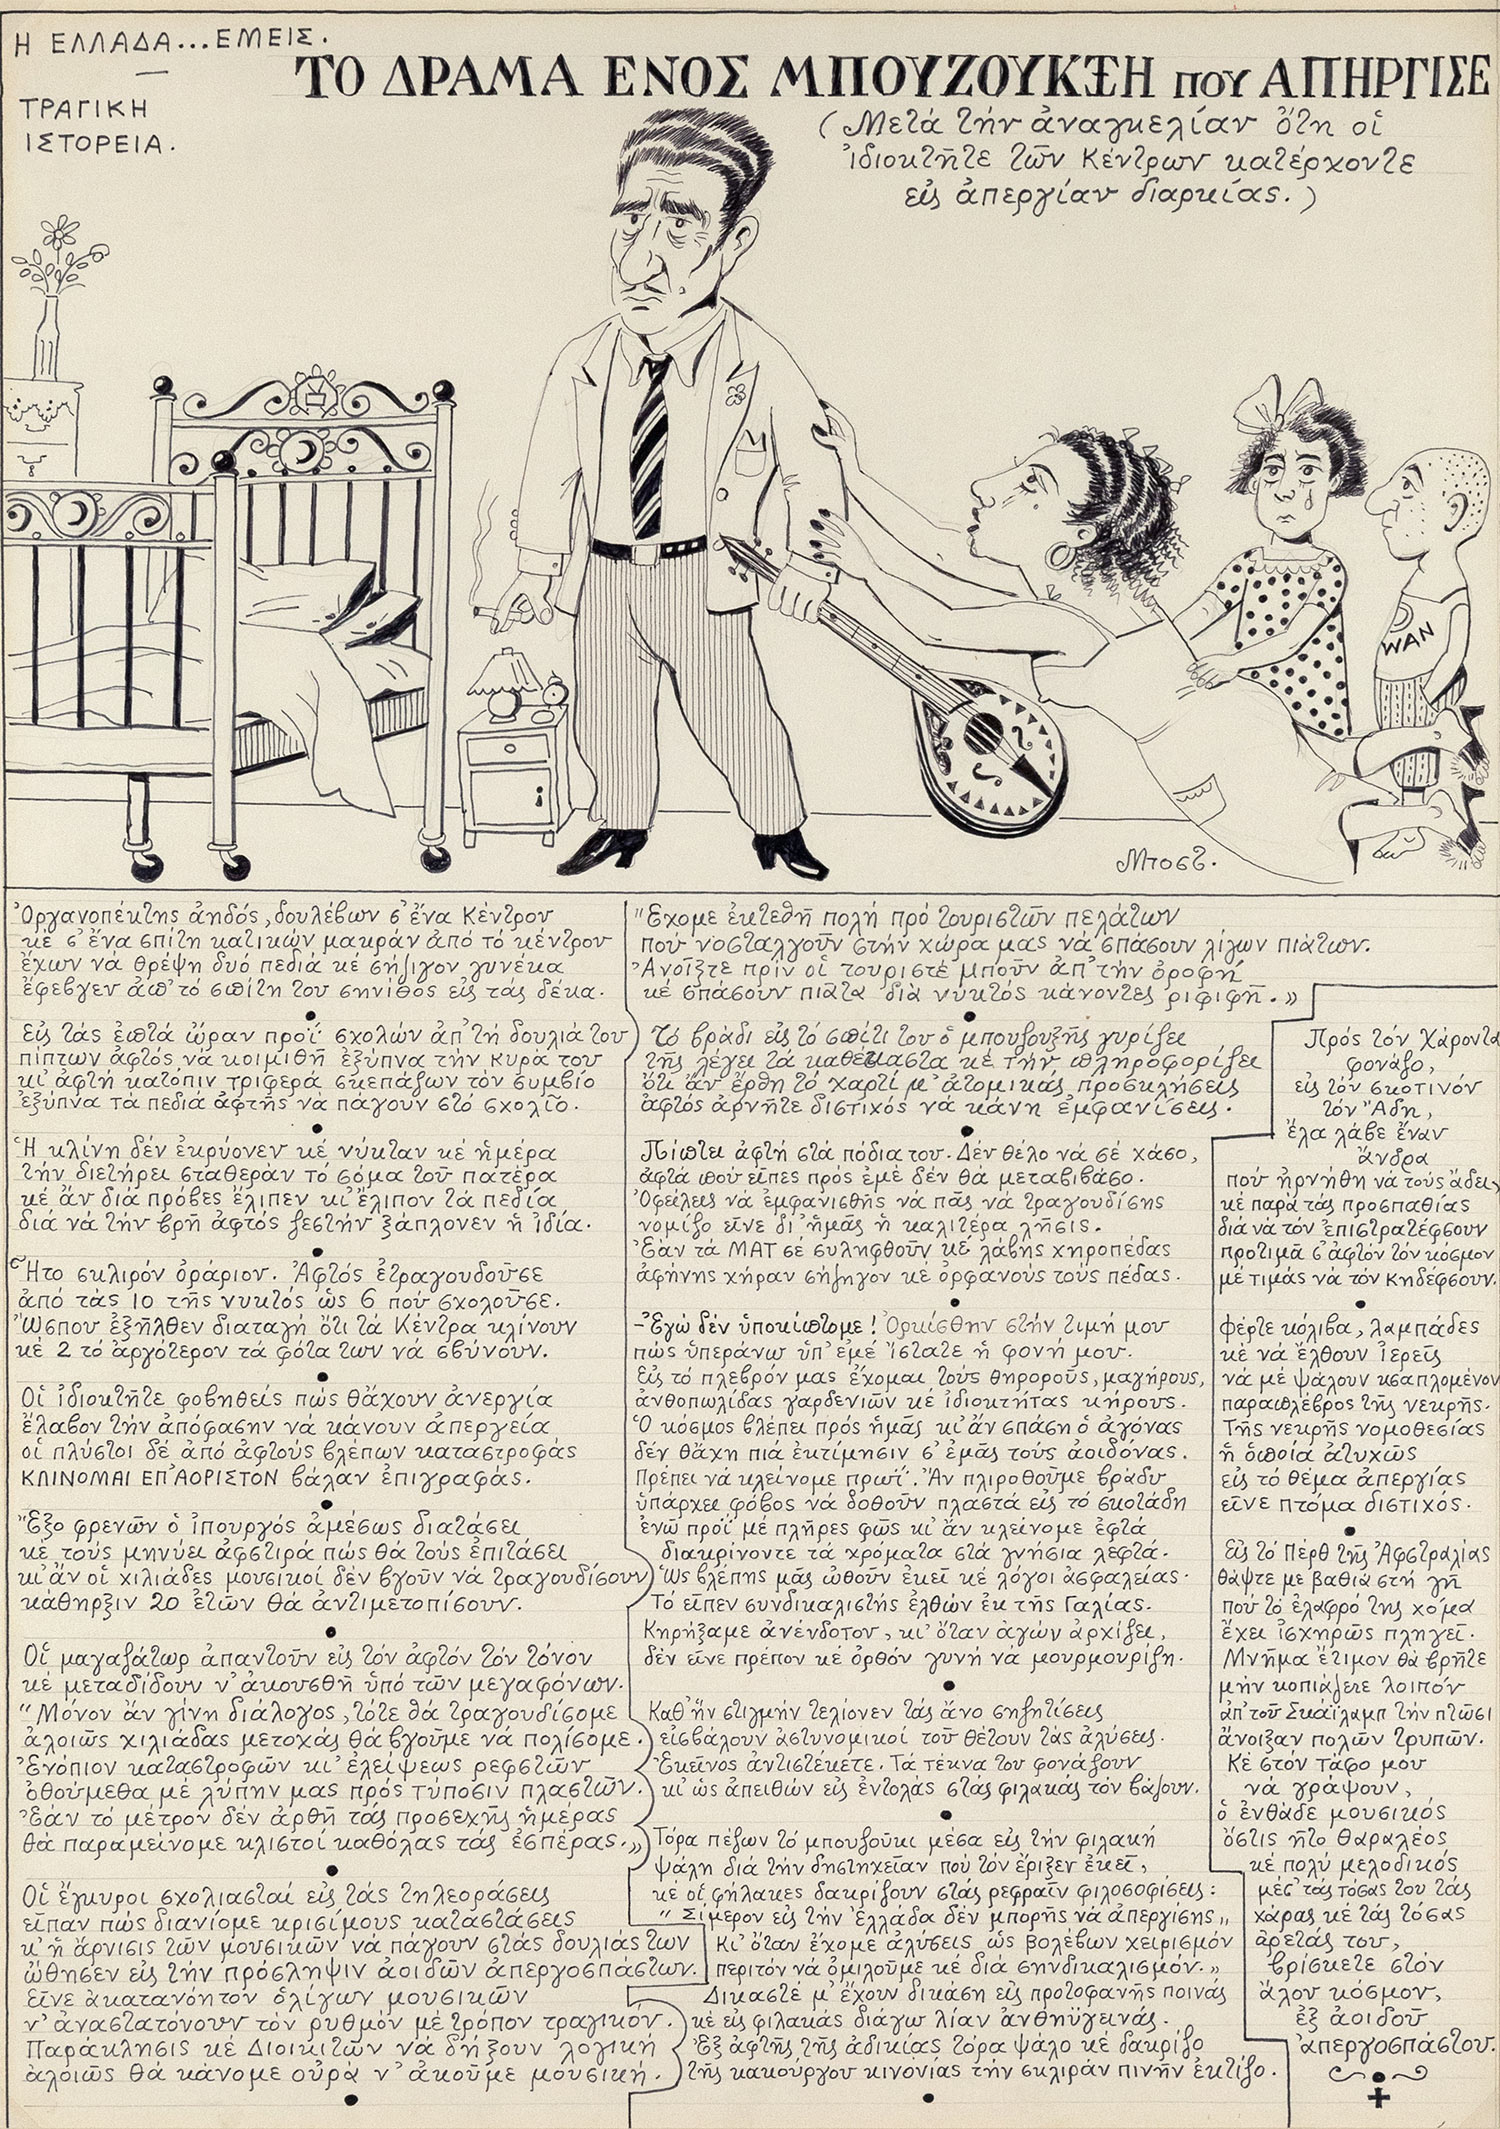 Η ΕΛΛΑΔΑ...ΕΜΕΙΣ.
ΤΡΑΓΙΚΗ
ΙΣΤΟΡΕΙΑ.
ΤΟ ΔΡΑΜΑ ΕΝΟΣ ΜΠΟΥΖΟΥΚΞΗ ΠΟΥ ΑΠΗΡΓΙΣΕ
(Μετά τήν ἀναγκελίαν ὅτη οἱ
ἰδιοκτῆτε τῶν Κέντρων κατέρχοντε
εἰς ἀπεργίαν διαρκίας.)
WAN
Μποστ.
Ὀργανοπέκτης ἀηδός, δουλέβων σ' ἕνα Κέντρον
κέ σ' ἕνα σπίτη κατικών μακράν ἀπό τό κέντρον
ἔχων νά θρέψη δυό πεδιά κέ σήζιγον γυνέκα
ἔφεβγεν ἀπ' τό σπίτη του σηνίθος εἰς τάς δέκα.
Εἰς τάς ἑπτά ὥραν προΐ σχολών ἀπ' τή δουλιά του
πίπτων ἀφτός νά κοιμιθῆ ἐξύπνα τήν κυρά του
κι' ἀφτή κατόπιν τριφερά σκεπάζων τόν συμβίο
ἐξύπνα τά πεδιά ἀφτῆς νά πάγουν στό σχολῖο.
Ἡ κλίνη δέν ἐκρύονεν κέ νύκταν κέ ἡμέρα
τήν διετήρει σταθεράν τό σόμα τοῦ πατέρα
κέ ἄν διά πρόβες ἔλιπεν κι' ἔλιπον τά πεδία
διά νά τήν βρῆ ἀφτός ζεστήν ξάπλονεν ἡ ἰδία.
Ἦτο σκλιρόν ὀράριον. Ἀφτός ἐτραγουδοῦσε
ἀπό τάς 10 τῆς νυκτός ὡς 6 πού σχολοῦσε.
Ὥσπου ἐξῆλθεν διαταγή ὅτι τά Κέντρα κλίνουν
κέ 2 τό ἀργότερον τά φότα των νά σβύνουν.
Οἱ ἰδιοκτῆτε φοβηθείς πώς θἄχουν ἀνεργία
ἔλαβον τήν ἀπόφασην νά κάνουν ἀπεργεία
οἱ πλύστοι δέ ἀπό ἀφτούς βλέπων καταστροφάς
ΚΛΙΝΟΜΑΙ ΕΠ' ΑΟΡΙΣΤΟΝ βάλαν ἐπιγραφάς.
Ἔξο φρενῶν ὁ ἱπουργός ἀμέσως διατάσει
κέ τούς μηνύει ἀφστιρά πώς θά τούς ἐπιτάσει
κι' ἄν οἱ χιλιάδες μουσικοί δέν βγοῦν νά τραγουδίσουν
κάθηρξιν 20 ἐτῶν θά ἀντιμετοπίσουν.
Οἱ μαγαζάτωρ ἀπαντοῦν εἰς τόν ἀφτόν τόν τόνον
κέ μεταδίδουν ν' ἀκουσθῆ ὑπό τῶν μεγαφόνων.
"Μόνον ἄν γίνη διάλογος, τότε θά τραγουδίσομε
ἀλοιῶς χιλιάδας μετοχάς θά βγοῦμε νά πολίσομε.
Ἐνόπιον καταστροφῶν κι' ἐλείψεως ρεφστῶν
ὀθούμεθα μέ λύπην μας πρός τύποσιν πλαστῶν.
Ἐάν τό μέτρον δέν ἀρθῆ τάς προσεχῆς ἡμέρας
θά παραμείνομε κλιστοί καθόλας τάς ἑσπέρας.»
Οἱ ἔγκυροι σχολιασταί εἰς τάς τηλεοράσεις
εἶπαν πώς διανίομε κρισίμους καταστάσεις
κ' ἡ ἄρνισις τῶν μουσικῶν νά πάγουν στάς δουλιάς των
ὤθησεν εἰς τήν πρόσληψιν ἀοιδῶν ἀπεργοσπάστων.
Εἶνε ἀκατανόητον ὀλίγων μουσικῶν
ν' ἀναστατόνουν τόν ρυθμόν μέ τρόπον τραγικόν.
Παράκλησις κέ Διοικιτῶν νά δήξουν λογική
ἀλοιῶς θά κάνομε οὐρά ν' ἀκοῦμε μουσική.
"Ἔχομε ἐκτεθῆ πολή πρό τουριστῶν πελάτων
πού νοσταλγοῦν στήν χώρα μας νά σπάσουν λίγων πιάτων.
Ἀνοῖξτε πρίν οἱ τουριστέ μποῦν ἀπ' τήν ὀροφή
κέ σπάσουν πιάτα διά νυκτός κάνοντες ριφιφῆ.»
Τό βράδι εἰς τό σπίτι του ὁ μπουζουξῆς γυρίζει
τῆς λέγει τά καθέκαστα κέ τήν πληροφορίζει
ὅτι ἄν ἔρθη τό χαρτί μ' ἀτομικάς προσκλήσεις
ἀφτός ἀρνῆτε διστιχός νά κάνη ἐμφανίσεις.
Πίπτει ἀφτή στά πόδια του. Δέν θέλο νά σέ χάσο,
ἀφτά πού εἶπες πρός ἐμέ δέν θά μεταβιβάσο.
Ὀφείλεις νά ἐμφανισθῆς νά πᾶς νά τραγουδίσης
νομίζο εἶνε δι' ἡμᾶς ἡ καλιτέρα λῆσις.
Ἐάν τά ΜΑΤ σέ συληφθοῦν κέ λάβης χηροπέδας
ἀφήνης χήραν σήζηγον κέ ὀρφανούς τούς πέδας.
-Ἐγώ δέν ὑποκίπτομε! Ὀρκίσθην στήν τιμή μου
πώς ὑπεράνω ὑπ' ἐμέ ἵστατε ἡ φονή μου.
Εἰς τό πλεβρόν μας ἔχομαι τούς θηρορούς, μαγήρους,
ἀνθοπωλίδας γαρδενιῶν κέ ἰδιοκτήτας κήρους.
Ὁ κόσμος βλέπει πρός ἡμᾶς κι' ἄν σπάση ὁ ἀγόνας
δέν θἄχη πιά ἐκτίμησιν σ' ἐμᾶς τούς ἀοιδόνας.
Πρέπει νά κλείνομε πρωΐ. Ἄν πλιροθοῦμε βράδυ
ὑπάρχει φόβος νά δοθοῦν πλαστά εἰς τό σκοτάδη
ἐνῶ προΐ μέ πλῆρες φῶς κι' ἄν κλείνομε ἑφτά
διακρίνοντε τά χρόματα στά γνήσια λεφτά.
Ὡς βλέπης μᾶς ὠθοῦν ἐκεῖ κέ λόγοι ἀσφαλείας.
Τό εἶπεν συνδικαλιστής ἐλθών ἐκ τῆς Γαλίας.
Κηρήξαμε ἀνένδοτον, κι' ὅταν ἀγών ἀρχίζει,
δέν εἶνε πρέπον κέ ὀρθόν γυνή νά μουρμουρίζη.
Καθ' ἥν στιγμήν τελίονεν τάς ἄνο σηζητίσεις
εἰσβάλουν ἀστυνομικοί τοῦ θέτουν τάς ἀλύσεις.
Ἐκεῖνος ἀντιστέκετε. Τά τέκνα του φονάζουν
κι' ὡς ἀπειθών εἰς ἐντολάς στάς φιλακάς τόν βάζουν.
Τόρα πέζων τό μπουζοῦκι μέσα εἰς τήν φιλακή
ψάλη διά τήν δηστηχείαν πού τόν ἔριξεν ἐκεῖ,
κέ οἱ φήλακες δακρίζουν στάς ρεφραῖν φιλοσοφίσεις:
"Σίμερον εἰς τήν Ἑλλάδα δέν μπορῆς νά ἀπεργίσης„
Κι' ὅταν ἔχομε ἀλύσεις ὡς βολέβων χειρισμόν
περιτόν νά ὁμιλοῦμε κέ διά σηνδικαλισμόν.»
Δικαστέ μ' ἔχουν δικάση εἰς προτοφανῆς ποινάς
κέ εἰς φιλακάς διάγω λίαν ἀνθηϋγεινάς.
Ἐξ ἀφτῆς τῆς ἀδικίας τόρα ψάλο κέ δακρίζο
τῆς κακούργου κινονίας τήν σκλιράν πινήν ἐκτίζο.
Πρός τόν Χάροντα
φονάζο,
εἰς τόν σκοτινόν
τόν Ἄδη,
ἔλα λάβε ἕναν
ἄνδρα
πού ἠρνήθη νά τούς ἄδει,
κέ παρά τάς προσπαθίας
διά νά τόν ἐπιστρατέφσουν
προτιμᾶ σ' ἀφτόν τόν κόσμον
μέ τιμάς νά τόν κηδέφσουν.
Φέρτε κόλιβα, λαμπάδες
κέ νά ἔλθουν ἱερεῖς
νά μέ ψάλουν κσαπλομένον
παραπλέβρος τῆς νεκρῆς.
Τῆς νεκρῆς νομοθεσίας
ἡ ὁποία ἀτυχῶς
εἰς τό θέμα ἀπεργίας
εἶνε πτόμα διστιχός.
Εἰς τό Πέρθ τῆς Ἀφστραλίας
θάψτε με βαθιά στή γῆ
πού τό ἐλαφρό της χόμα
ἔχει ἰσχηρῶς πληγεῖ.
Μνῆμα ἕτιμον θά βρῆτε
μήν κοπιάζετε λοιπόν
ἀπ' τοῦ Σκάϊλαμπ τήν πτῶσι
ἄνοιξαν πολῶν τρυπῶν.
Κέ στόν τάφο μου
νά γράψουν,
ὁ ἐνθάδε μουσικός
ὅστις ἦτο θαραλέος
κέ πολύ μελοδικός
μέσ' τάς τόσας του τάς
χάρας κέ τάς τόσας
ἀρετάς του,
βρίσκετε στόν
ἄλον κόσμον,
ἐξ ἀοιδοῦ
ἀπεργοσπάστου.